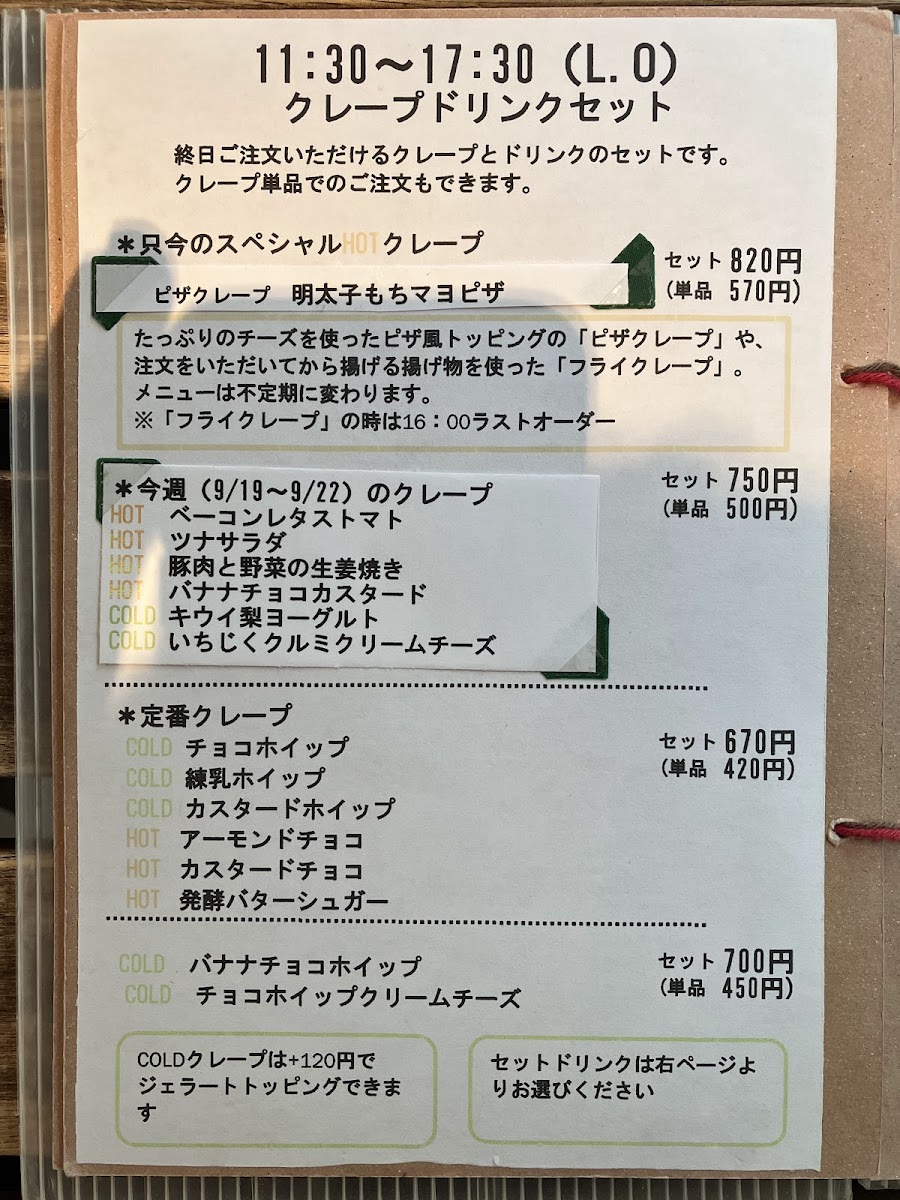 11:30〜17:30 (L.O)
クレープドリンクセット
終日ご注文いただけるクレープとドリンクのセットです。
クレープ単品でのご注文もできます。
＊只今のスペシャルHOTクレープ
セット 820円
(単品 570円)
ピザクレープ 明太子もちマヨピザ
たっぷりのチーズを使ったピザ風トッピングの「ピザクレープ」や、
注文をいただいてから揚げる揚げ物を使った「フライクレープ」。
メニューは不定期に変わります。
※「フライクレープ」の時は16：00ラストオーダー
＊今週（9/19〜9/22）のクレープ
セット 750円
(単品 500円)
HOT ベーコンレタストマト
HOT ツナサラダ
HOT 豚肉と野菜の生姜焼き
HOT バナナチョコカスタード
COLD キウイ梨ヨーグルト
COLD いちじくクルミクリームチーズ
＊定番クレープ
セット 670円
(単品 420円)
COLD チョコホイップ
COLD 練乳ホイップ
COLD カスタードホイップ
HOT アーモンドチョコ
HOT カスタードチョコ
HOT 発酵バターシュガー
セット 700円
(単品 450円)
COLD バナナチョコホイップ
COLD チョコホイップクリームチーズ
COLDクレープは+120円で
ジェラートトッピングできま
す
セットドリンクは右ページよ
りお選びください